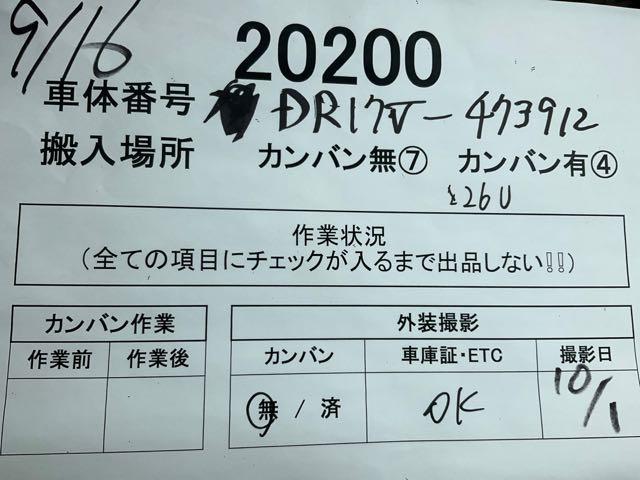 9/16
20200
車体番号 DR17V-473912
搬入場所 カンバン無⑦ カンバン有④
26U
作業状況
(全ての項目にチェックが入るまで出品しない!!)
カンバン作業 外装撮影
作業前 作業後 カンバン 車庫証・ETC 撮影日
無 / 済 OK 10/1